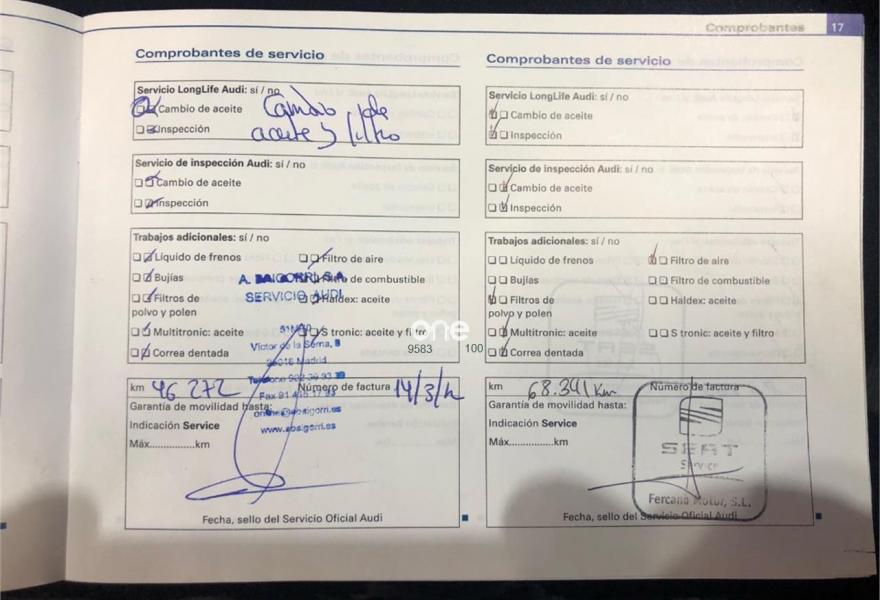 Comprobantes 17
Comprobantes de servicio
Servicio LongLife Audi: sí / no
Cambio de aceite
Cambio de
Inspección
aceite y filtro
Servicio de inspección Audi: sí / no
Cambio de aceite
Inspección
Trabajos adicionales: sí / no
Líquido de frenos
Filtro de aire
Bujías
Filtro de combustible
Filtros de
polvo y polen
Haldex: aceite
Multitronic: aceite
S tronic: aceite y filtro
Correa dentada
SERVICIO AUDI
Víctor de la Serna, 8
28016 Madrid
www.absigorri.es
km 46 272
Número de factura 14/3/12
Garantía de movilidad hasta:
Indicación Service
Máx................km
Fecha, sello del Servicio Oficial Audi
Comprobantes de servicio
Servicio LongLife Audi: sí / no
Cambio de aceite
Inspección
Servicio de inspección Audi: sí / no
Cambio de aceite
Inspección
Trabajos adicionales: sí / no
Líquido de frenos
Filtro de aire
Bujías
Filtro de combustible
Filtros de
polvo y polen
Haldex: aceite
Multitronic: aceite
S tronic: aceite y filtro
Correa dentada
km 68.341 Km
Número de factura
Garantía de movilidad hasta:
Indicación Service
Máx................km
SEAT
Service
Fercano Motor, S.L.
Fecha, sello del Servicio Oficial Audi
one
9583 100